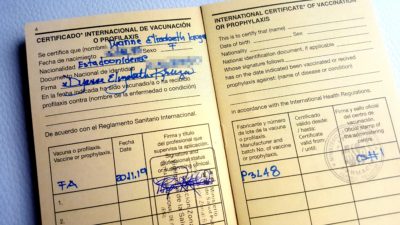 4
CERTIFICADO* INTERNACIONAL DE VACUNACIÓN
O PROFILAXIS
Se certifica que (nombre)
Fecha de nacimiento Sexo F
Nacionalidad Estadounidense
Documento Nacional de identificación
Firma
En la fecha indicada ha sido vacunado/a o ha
profilaxis contra (nombre de la enfermedad o condición)
De acuerdo con el Reglamento Sanitario Internacional.
Vacuna o profilaxis
Vaccine or prophylaxis
Fecha
Date
Firma y título
del profesional que
supervisa la aplicación
Signature and
professional status
FA
20.11.19
1.
2.
INTERNATIONAL CERTIFICATE* OF VACCINATION
OR PROPHYLAXIS
This is to certify that (name)
Date of birth Sex
Nationality
National identification document, if applicable
Whose signature follows
has on the date indicated been vaccinated or received
prophylaxis against (name of disease or condition)
in accordance with the International Health Regulations.
Fabricante y número
de lote de la vacuna
o profilaxis
Manufacturer and
batch No. of vaccine
or prophylaxis
Certificado
válido desde /
hasta:
Certificate
valid from /
until:
Firma y sello oficial
del centro de
vacunación.
Official stamp of
the administering
centre.
P3L48